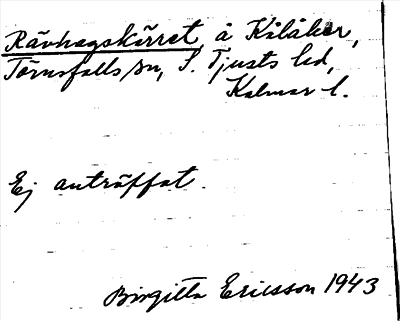 Rävhagskärret å Kålåker,
Törnsfalls sn, S. Tjusts hd,
Kalmar l.
Ej anträffat.
Birgitta Ericsson 1943